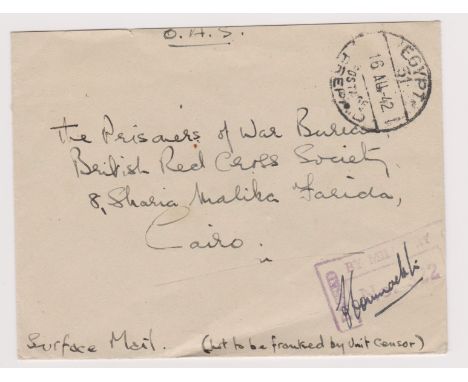 O.H.S.
EGYPT
31
16 AU 42
PREPAID
The Prisoners of War Bureau,
British Red Cross Society,
8, Sharia Malika Farida,
Cairo.
BY MILITARY
Surface Mail. (Not to be franked by Unit Censor)